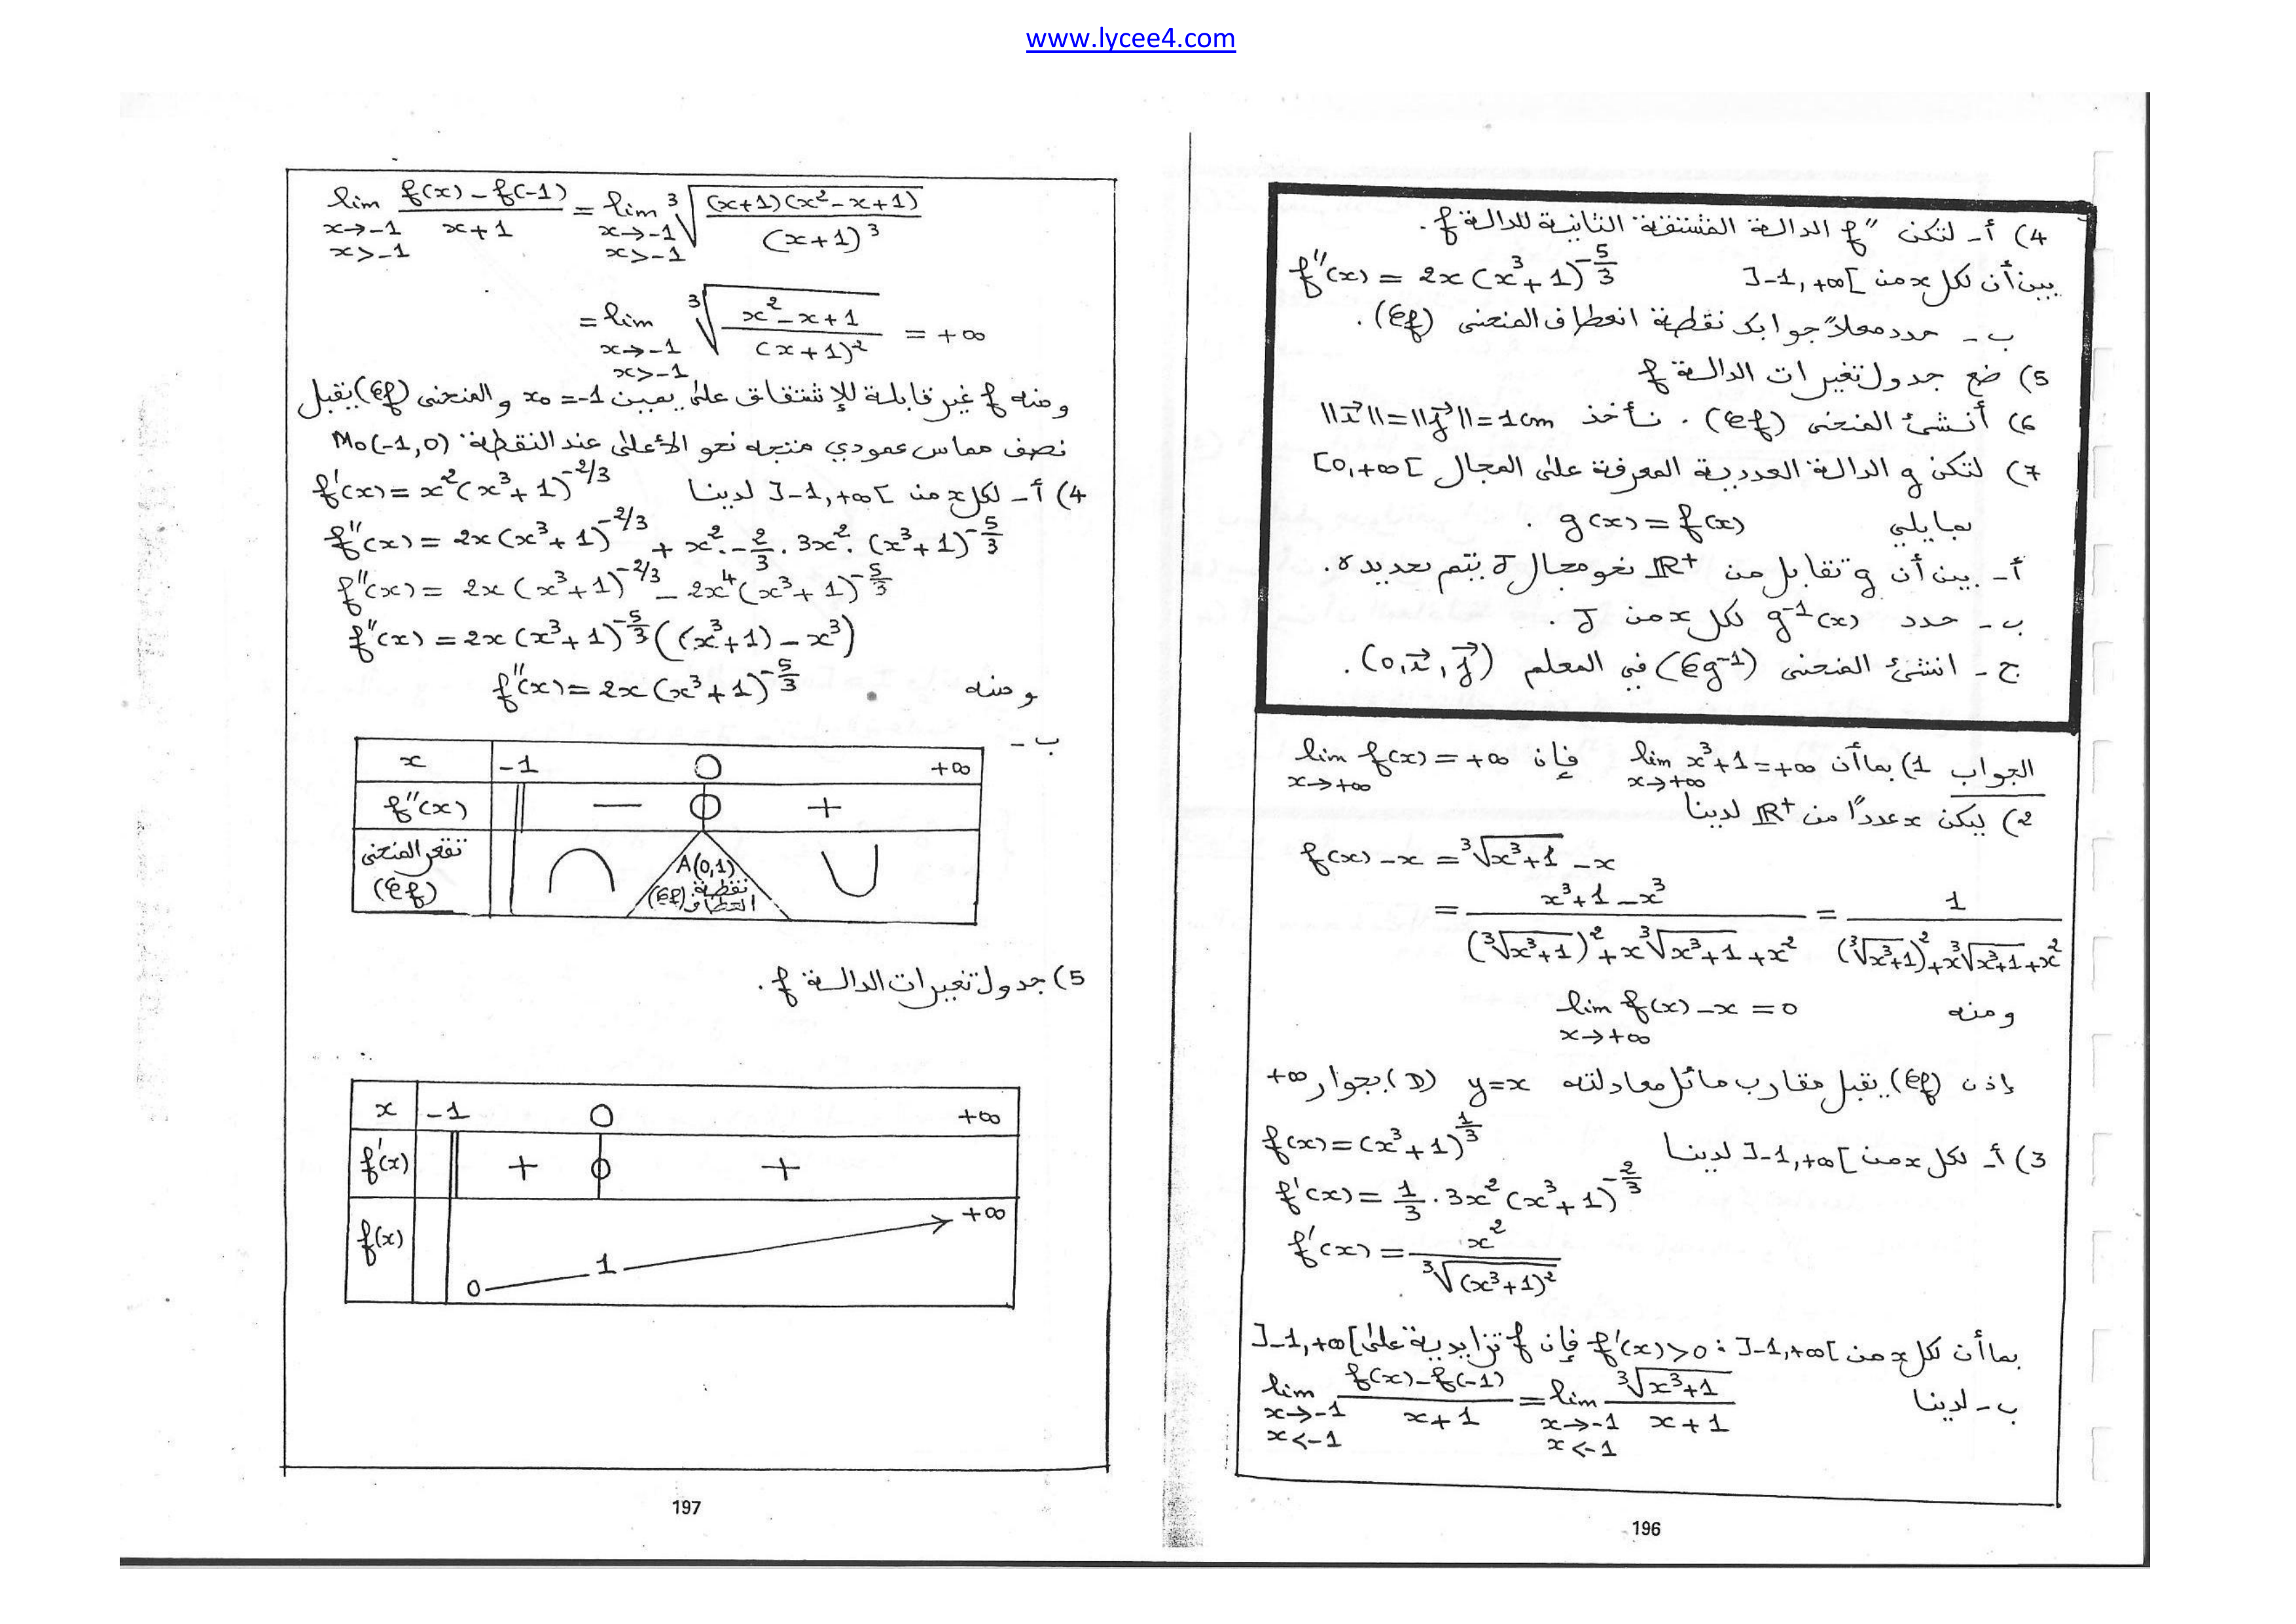 www.lycee4.com
4) أ- لتكن f″ الدالة المشتقة الثانية للدالة f.
بين أن لكل x من ]-1,+∞[ f″(x) = 2x(x³+1)^(-5/3)
ب- حدد معللاً جوابك نقطة انعطاف المنحنى (Cf).
5) ضع جدول تغيرات الدالة f
6) أنشئ المنحنى (Cf). نأخذ ||i⃗||=||j⃗||=1cm
7) لتكن g الدالة العددية المعرفة على المجال [0,+∞[
بمايلي g(x) = f(x).
أ- بين أن g تقابل من ℝ⁺ نحو مجال J يتم تحديده.
ب- حدد g⁻¹(x) لكل x من J.
ج- انشئ المنحنى (Cg⁻¹) في المعلم (0,i⃗,j⃗).
الجواب 1) بما أن lim x³+1=+∞ فإن lim f(x)=+∞
x→+∞ x→+∞
2) ليكن x عدداً من ℝ⁺ لدينا
f(x)-x = ∛(x³+1) -x
= (x³+1-x³)/((∛(x³+1))²+x∛(x³+1)+x²) = 1/((∛(x³+1))²+x∛(x³+1)+x²)
ومنه lim f(x)-x = 0
x→+∞
إذن (Cf) يقبل مقارب مائل معادلته y=x (D) بجوار +∞
3) أ- لكل x من ]-1,+∞[ لدينا f(x)=(x³+1)^(1/3)
f'(x) = 1/3 · 3x²(x³+1)^(-2/3)
f'(x) = x²/∛((x³+1)²)
بما أن لكل x من ]-1,+∞[ : f'(x)>0 فإن f تزايدية على ]-1,+∞[
ب- لدينا lim (f(x)-f(-1))/(x+1) = lim ∛(x³+1)/(x+1)
x→-1 x→-1
x<-1 x<-1
196
lim (f(x)-f(-1))/(x+1) = lim ∛((x+1)(x²-x+1)/(x+1)³)
x→-1 x→-1
x>-1 x>-1
= lim ∛((x²-x+1)/(x+1)²) = +∞
x→-1
x>-1
ومنه f غير قابلة للإشتقاق على يمين x₀=-1 و المنحنى (Cf) يقبل
نصف مماس عمودي متجه نحو الأعلى عند النقطة M₀(-1,0)
4) أ- لكل x من ]-1,+∞[ لدينا f'(x) = x²(x³+1)^(-2/3)
f″(x) = 2x(x³+1)^(-2/3) + x²·-2/3·3x²·(x³+1)^(-5/3)
f″(x) = 2x(x³+1)^(-2/3) - 2x⁴(x³+1)^(-5/3)
f″(x) = 2x(x³+1)^(-5/3)((x³+1)-x³)
ومنه f″(x) = 2x(x³+1)^(-5/3)
ب-
x -1 0 +∞
f″(x) - 0 +
تقعر المنحنى (Cf) A(0,1) نقطة انعطاف (Cf)
5) جدول تغيرات الدالة f.
x -1 0 +∞
f'(x) + 0 +
f(x) 0 1 +∞
197